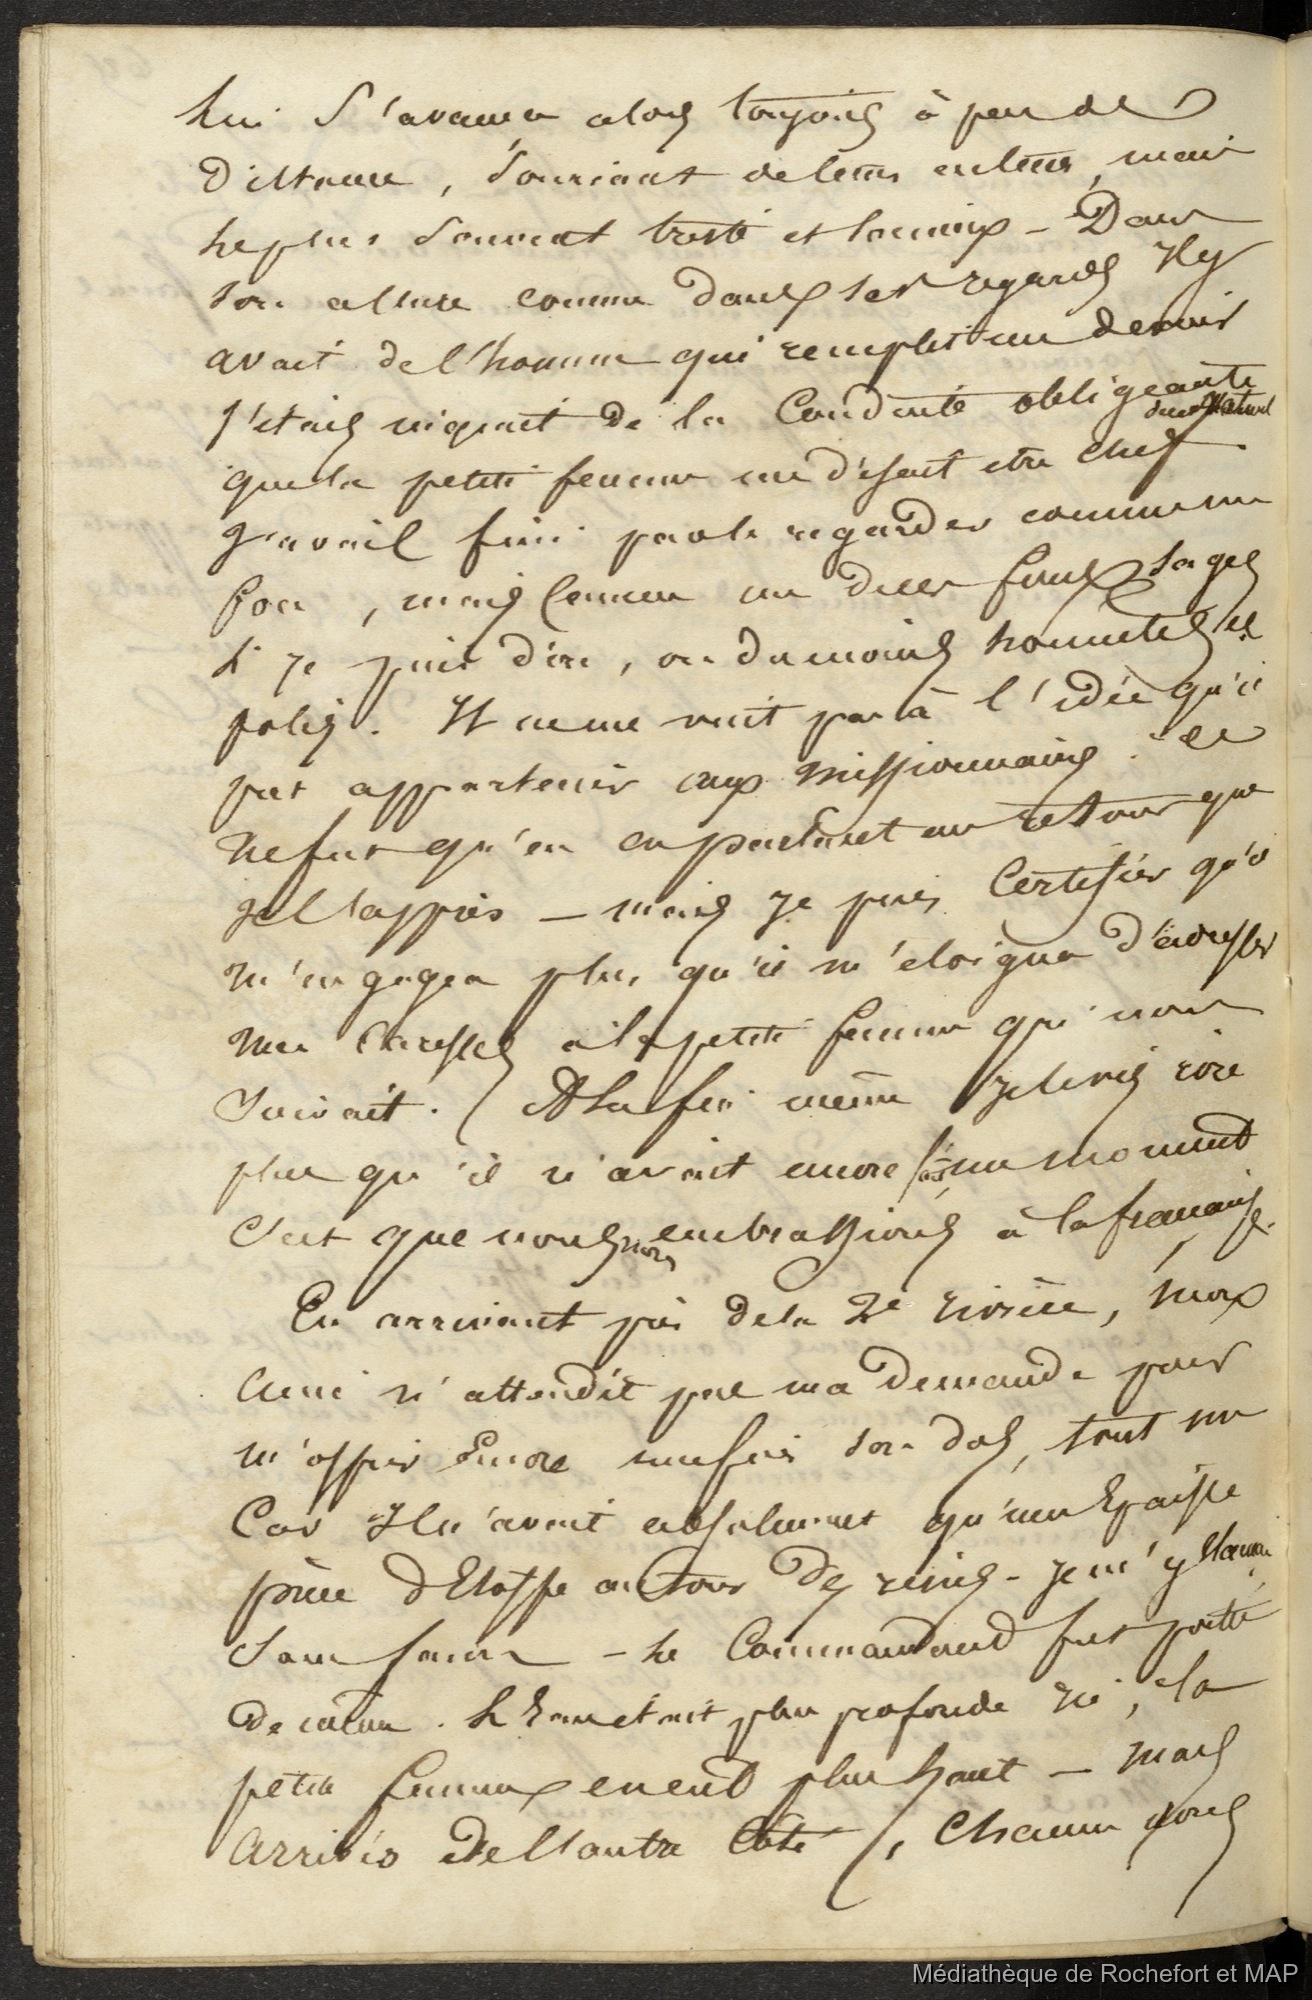 lui S'avança alors toujours à peu de
distance, Souriant de tems en tems, mais
le plus Souvent triste et soumis - Dans
son allure comme dans ses regards Il y
avait de l'homme qui remplit un devoir
J'etais inquiet de la Conduite obligeante
que la petite femme me disait etre chef
J'avais fini par le regarder comme un
fou, mais Comme un des foux Sages
Si je puis dire, ou du moins honnetes et
polis. Il ne me vint pas à l'idée qu'il
put appartenir aux Missionnaires. Ce
ne fut qu'en en parlant au retour que
Je l'appris — mais Je puis Certifier qu'il
m'engagea plus qu'il m'eloigna d'adresser
mes Caresses à la petite femme qui nous
Suivait. A la fin même Je le vis rire
plus qu'il n'avait encore fait, un moment
C'est que nous nous embrassions à la française.
En arrivant près de la 2e rivière, Mon
Ami n'attendit pas ma demande pour
m'offrir Encore une fois Son dos, tout nu
Car Il n'avait absolument qu'une Epaisse
pièce d'Etoffe autour des reins - Je m'y
Sans façon - Le Commandant fut porté
de même. L'Eau etait plus profonde ici, la
petite femme en eut plus haut — Mais
Arrivés de l'autre Coté, Chacun nous